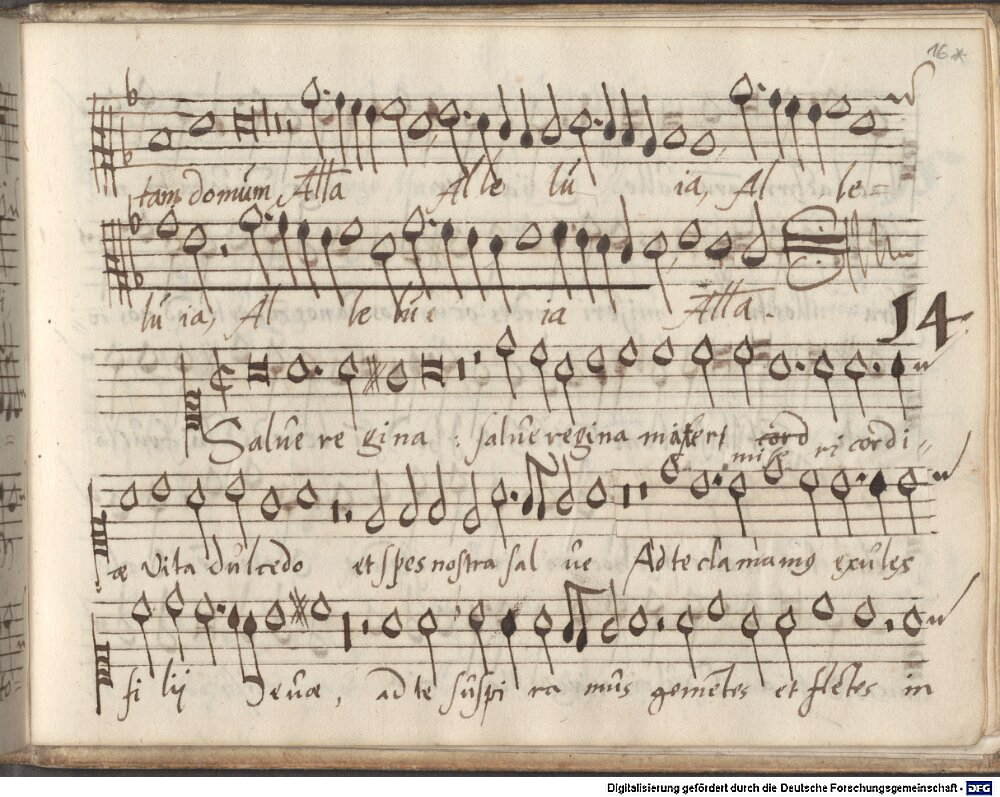 16
tam domum Alla Alle lu ia, Al le=
lu ia, Al le lu i ia Alla.
14
Salue re gina : salue regina materi cord ri cordi=
mise
æ Vita dulcedo et spes nostra sal ue Ad te clamamus exules
fi lij Æeuæ, ad te suspi ra mus gemētes et flētes in
Digitalisierung gefördert durch die Deutsche Forschungsgemeinschaft - DFG